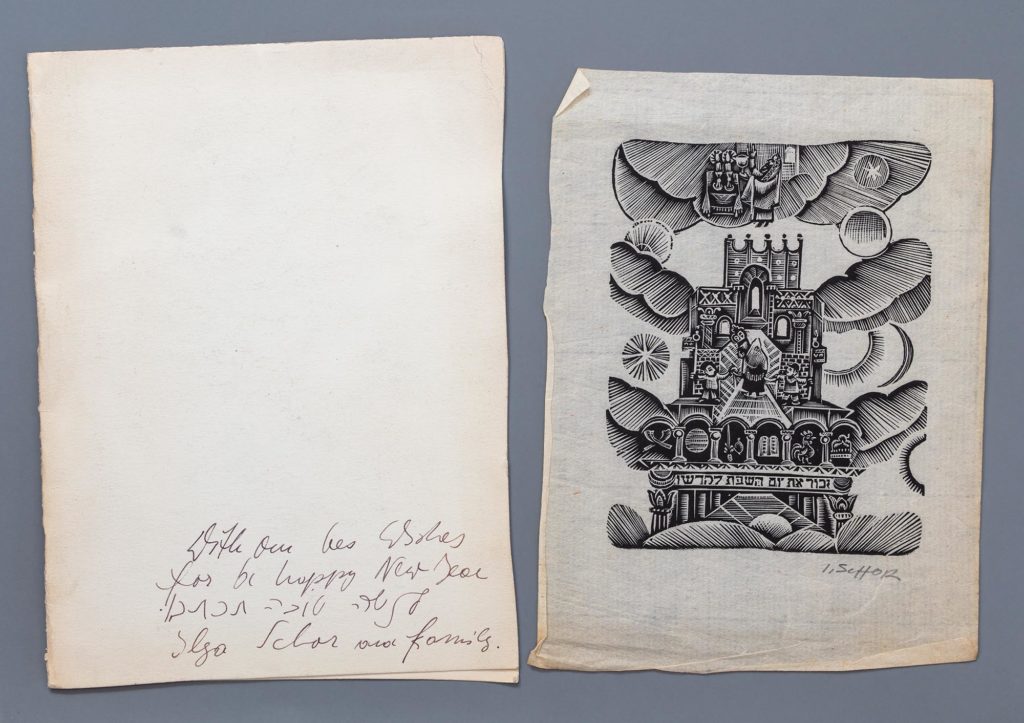 With our bes Wishes
for be happy New Year
לשנה טובה תכתבו.
Ilya Schor and family.
זכור את יום השבת לקדשו
I. SCHOR